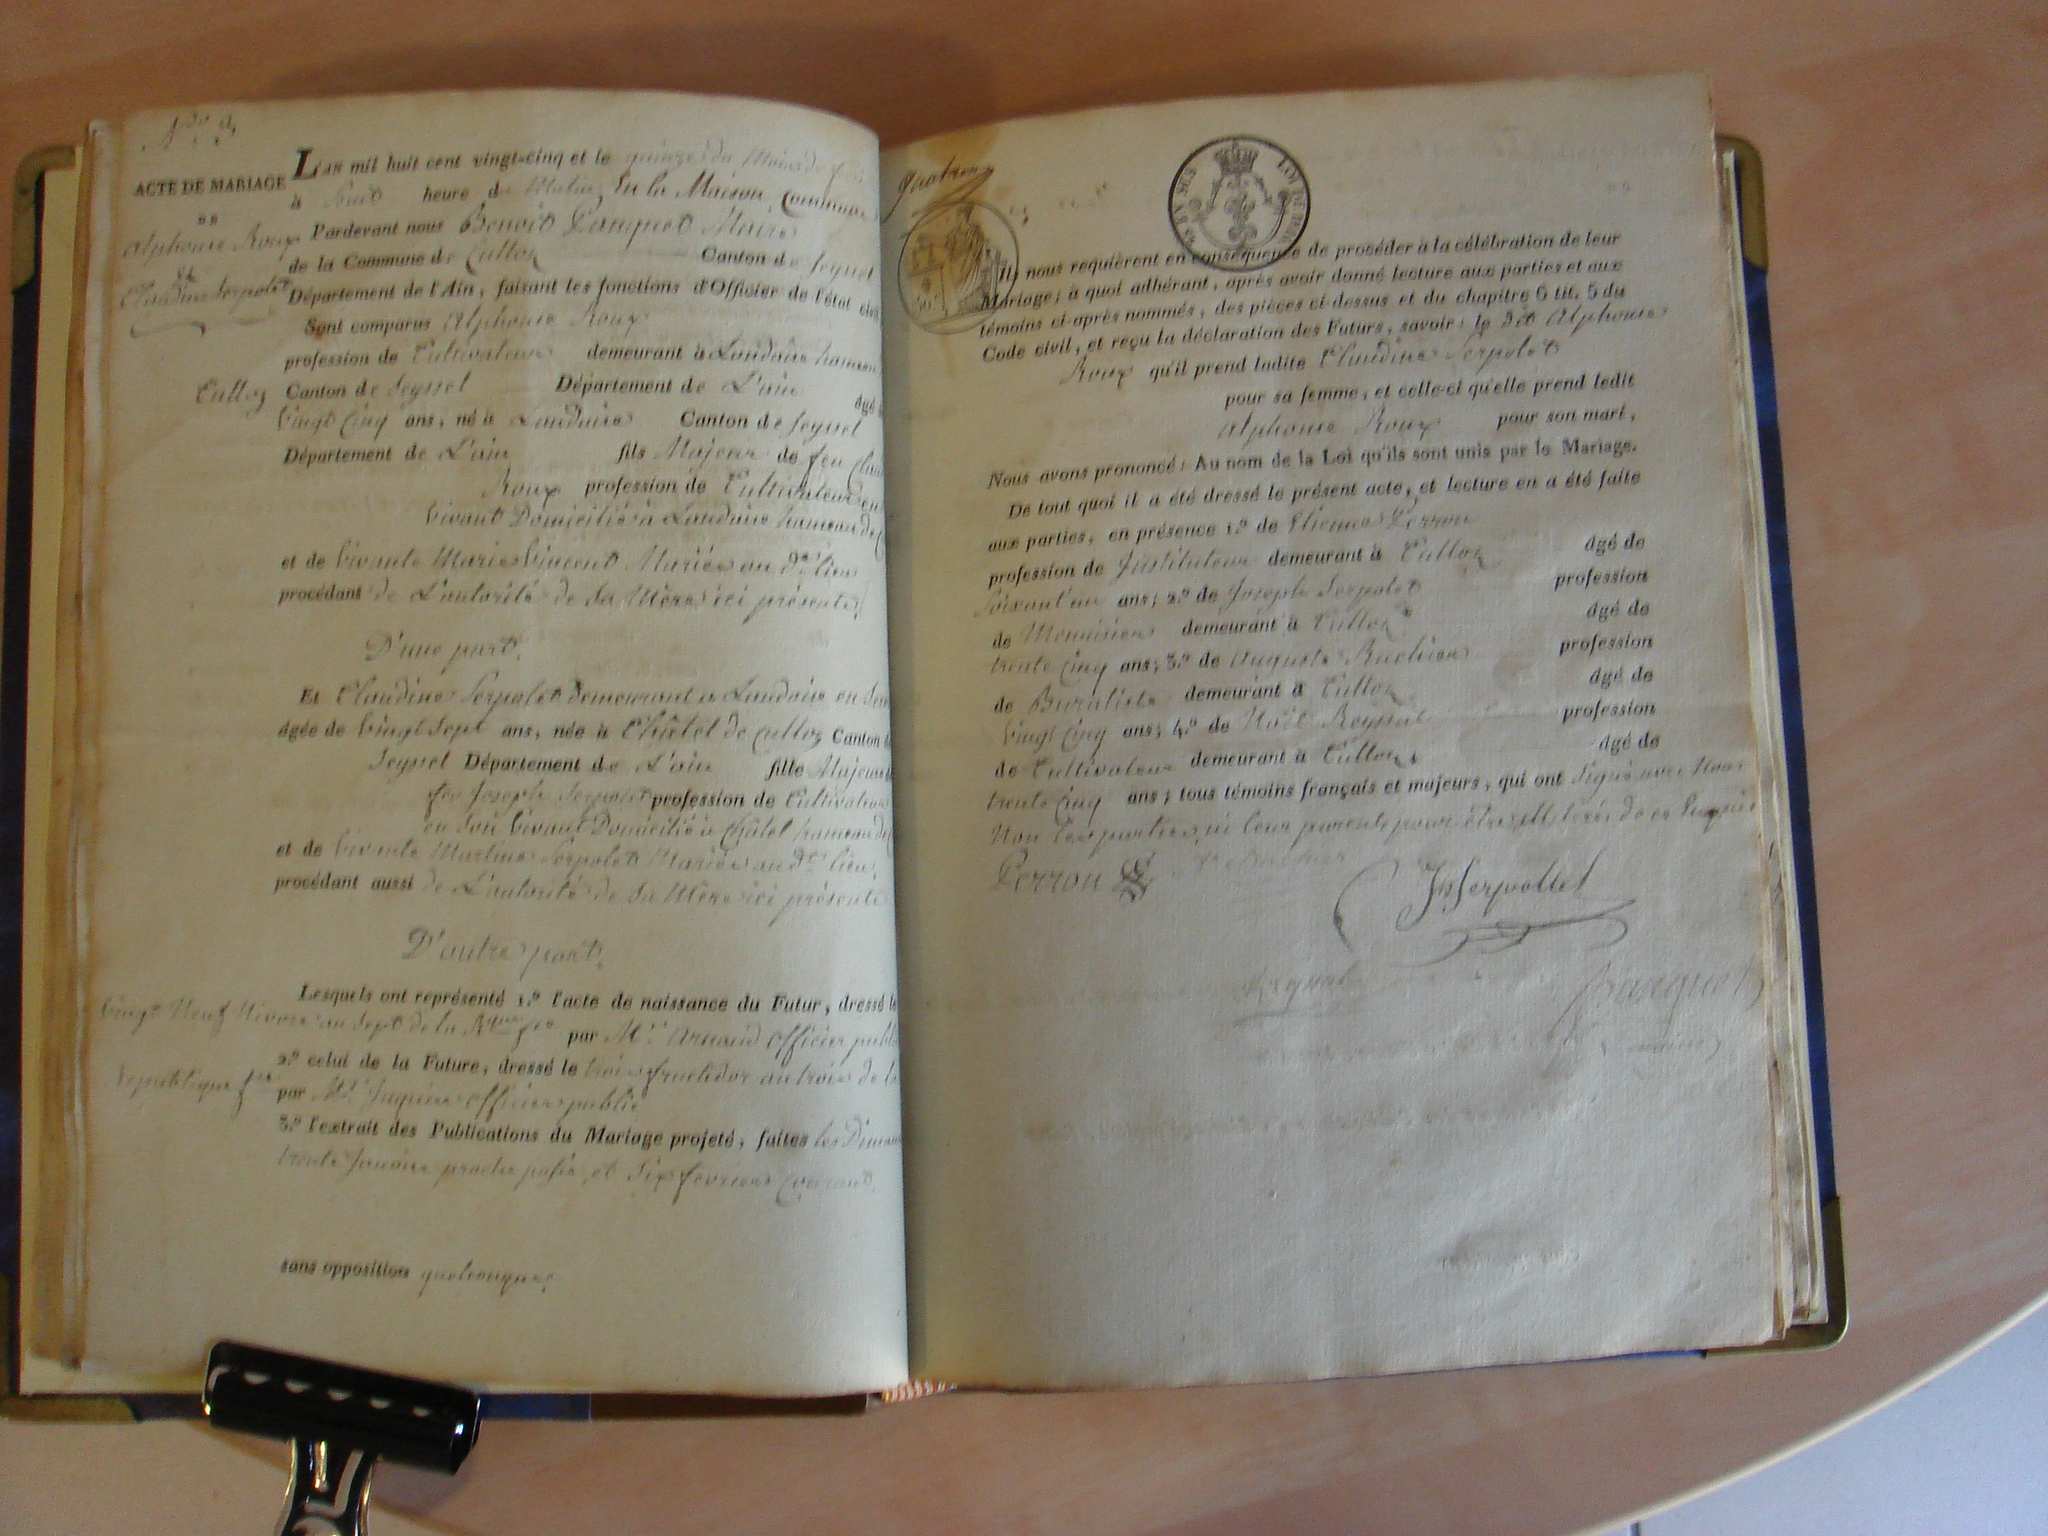 ACTE DE MARIAGE
DE
Alphonse Roux
et
Claudine Serpolet
L'an mil huit cent vingt-cinq et le quinze du Mois de
à huit heure du Matin En la Maison Commune
Pardevant nous Benoit Pauquet Maire
de la Commune de Culloz Canton de Seyssel
Département de l'Ain, faisant les fonctions d'Officier de l'état civil
Sont comparus Alphonse Roux
profession de Cultivateur demeurant à Landaise hameau
Culloz Canton de Seyssel Département de L'ain âgé
Vingt Cinq ans, né à Landaise Canton de Seyssel
Département de L'ain fils Majeur de feu
Roux profession de Cultivateur en
Vivant Domicilié à Landaise hameau de
et de Vivante Marie Vincent Mariés au dt lieu
procédant de L'autorité de Sa Mère ici présente
D'une part.
Et Claudine Serpolet demeurant à Landaise
âgée de Vingt Sept ans, née à Châtel de Culloz Canton de
Seyssel Département de L'ain fille Majeure
feu Joseph Serpolet profession de Cultivateur
en Son Vivant Domicilié à Châtel hameau de
et de Vivante Martine Serpolet Mariés au dt lieu
procédant aussi de L'autorité de Sa Mère ici présente
D'autre part.
Lesquels ont représenté 1.º l'acte de naissance du Futur, dressé le
Vingt Neuf Nivose an Sept de la par Mr Arnaud officier public
2.º celui de la Future, dressé le trois fructidor an trois de la
République par Mr officier public
3.º l'extrait des Publications du Mariage projeté, faites les
trente Janvier proche passé, et Six février Courant.
sans opposition quelconque.
Ils nous requièrent en conséquence de procéder à la célébration de leur
Mariage; à quoi adhérant, après avoir donné lecture aux parties et aux
témoins ci-après nommés, des pièces ci-dessus et du chapitre 6 tit. 5 du
Code civil, et reçu la déclaration des Futurs, savoir: le dit Alphonse
Roux qu'il prend ladite Claudine Serpolet
pour sa femme, et celle-ci qu'elle prend ledit
Alphonse Roux pour son mari,
Nous avons prononcé: Au nom de la Loi qu'ils sont unis par le Mariage.
De tout quoi il a été dressé le présent acte, et lecture en a été faite
aux parties, en présence 1.º de Etienne Perron
profession de Instituteur demeurant à Culloz âgé de
Soixante un ans; 2.º de Joseph Serpolet profession
de Menuisier demeurant à Culloz âgé de
trente Cinq ans; 3.º de Auguste Ruchier profession
de Buraliste demeurant à Culloz âgé de
Vingt Cinq ans; 4.º de Noël profession
de Cultivateur demeurant à Culloz âgé de
trente Cinq ans; tous témoins français et majeurs, qui ont Signé avec Nous
Non les parties ni leur parents pour être illitérés de ce Enquis
Perron
Jh Serpollet
Pauquet
maire